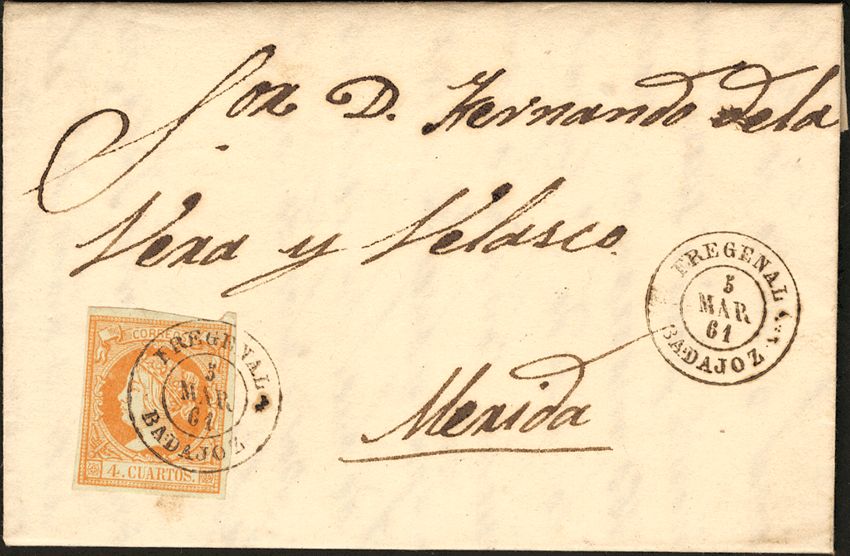 Sor D. Fernando dela
Vera y Velasco.
Merida
FREGENAL
5
MAR
61
BADAJOZ
CORREOS
FREGENAL
5
MAR
61
BADAJOZ
4. CUARTOS.